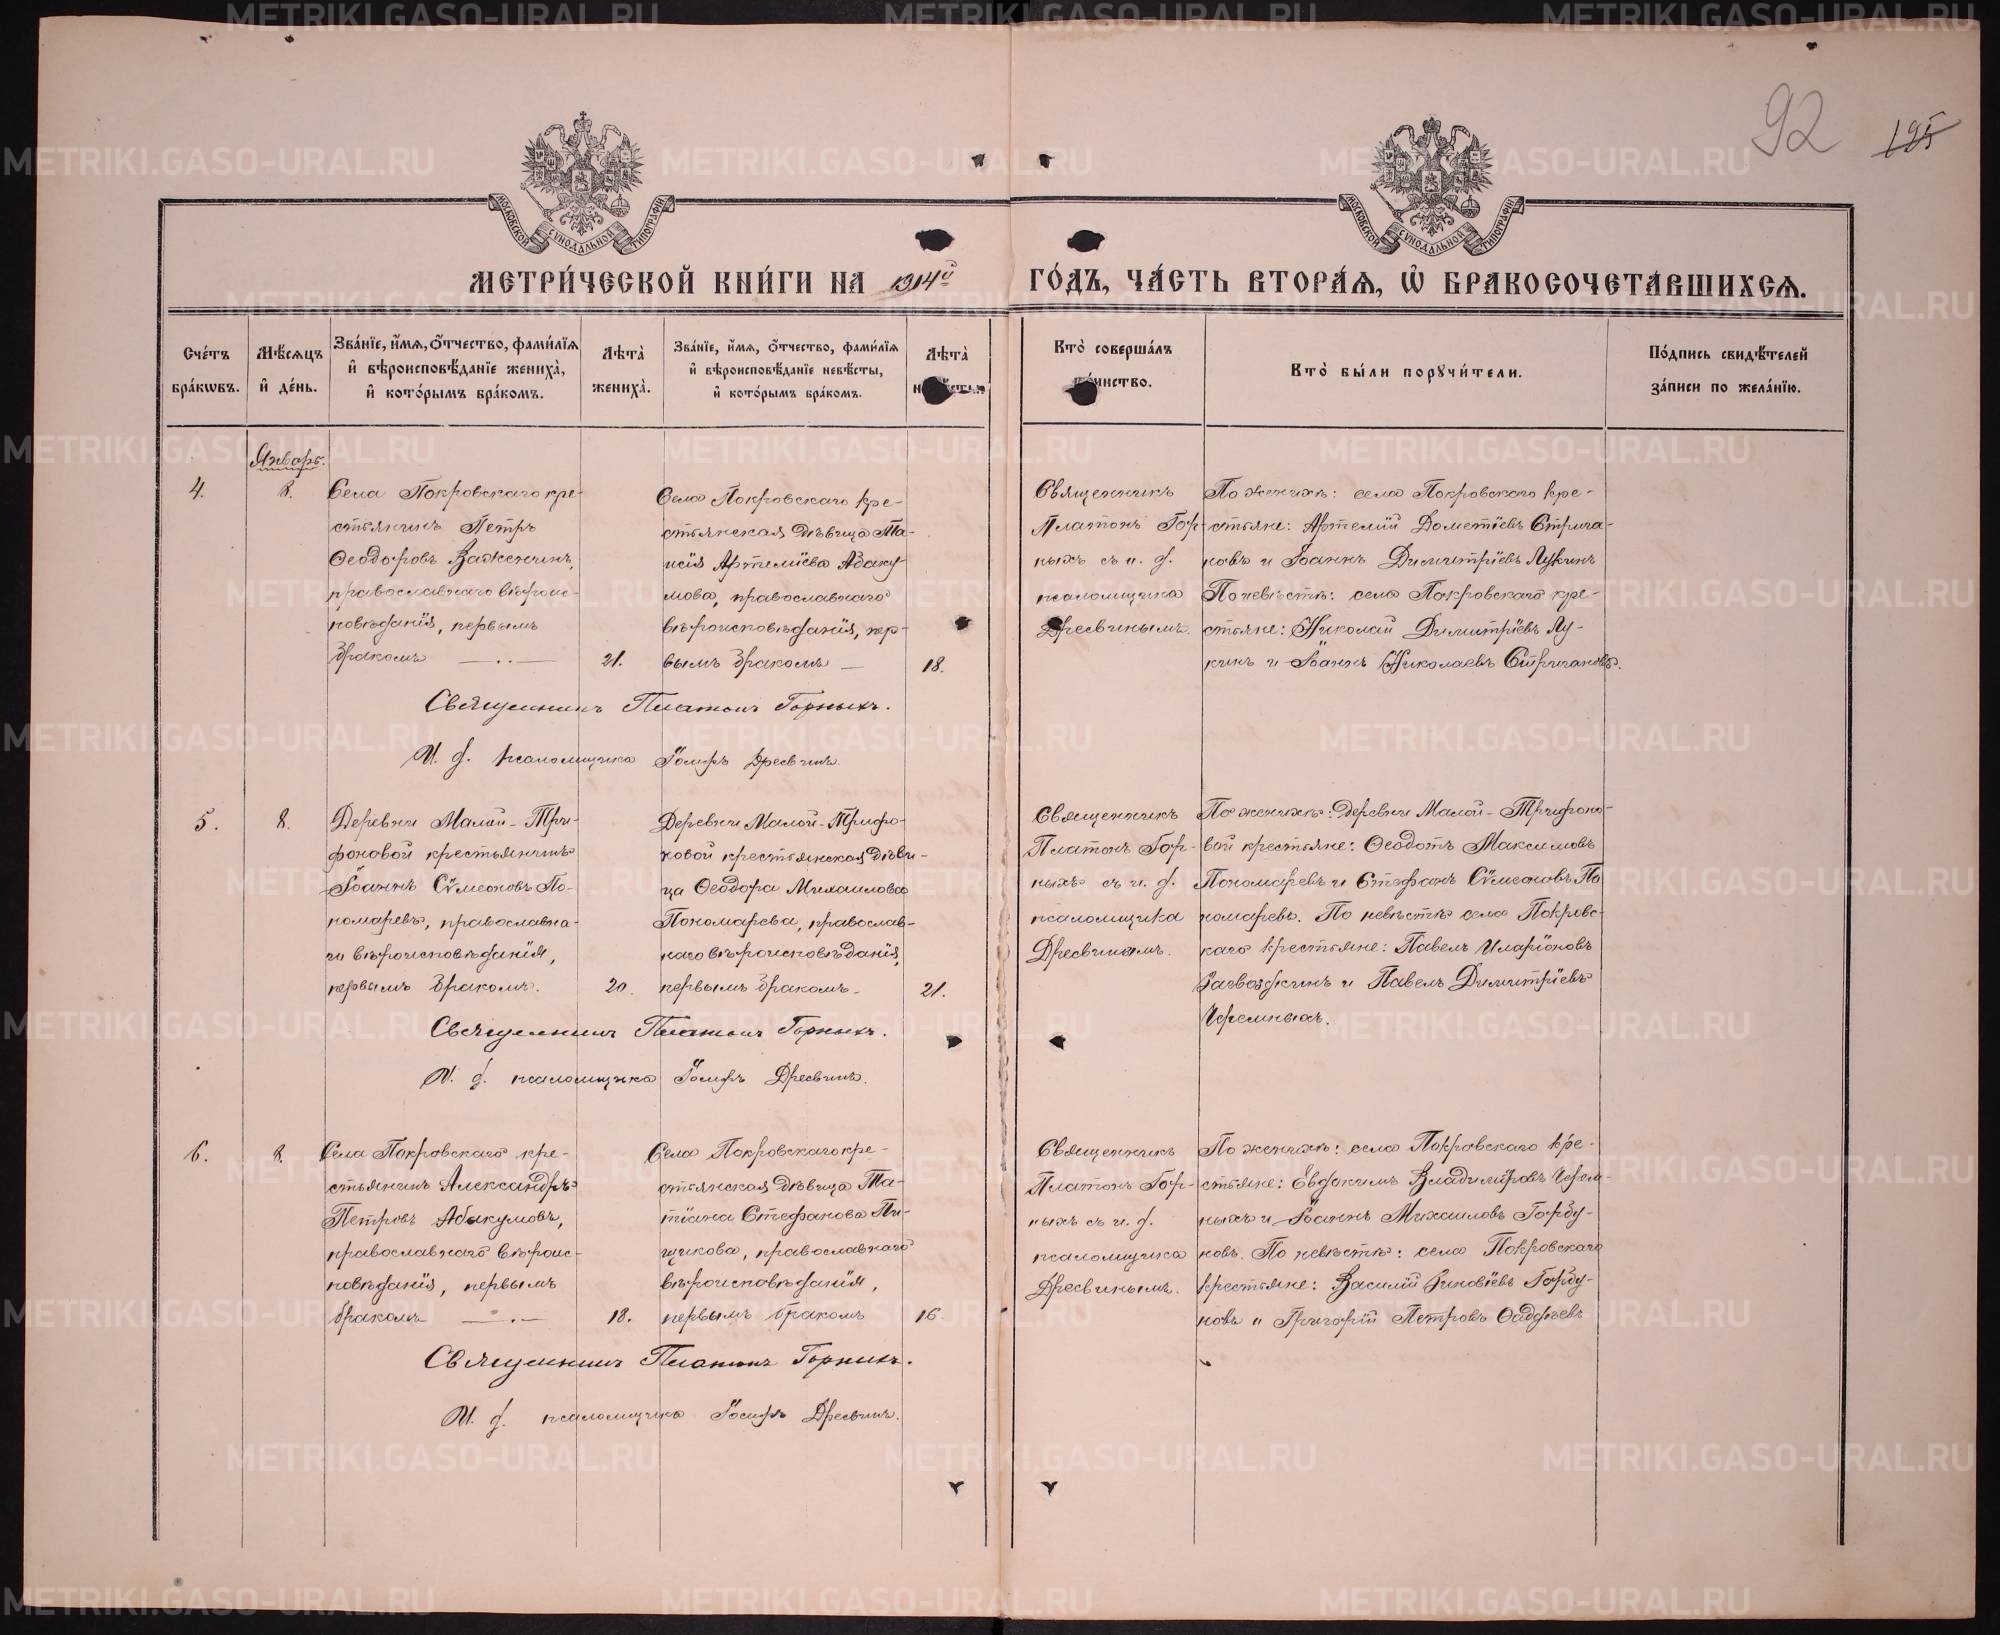 92
195
МОСКОВСКОЙ СУНОДАЛЬНОЙ ТИПОГРАФІИ
МОСКОВСКОЙ СУНОДАЛЬНОЙ ТИПОГРАФІИ
МЕТРИ́ЧЕСКОЙ КНИ́ГИ НА 1914й ГО́ДЪ, ЧА́СТЬ ВТОРА́Я, Ѽ БРАКОСОЧЕТА́ВШИХСЯ.
Сче́тъ бра́кѡвъ.
Мѣ́сяцъ и҆ де́нь.
Зва́нїе, и҆́мя, ѻ҆́тчество, фами́лїя и҆ вѣроисповѣ́данїе жениха̀, и҆ кото́рымъ бра́комъ.
Лѣта̀ жениха̀.
Зва́нїе, и҆́мя, ѻ҆́тчество, фами́лїя и҆ вѣроисповѣ́данїе невѣ́сты, и҆ кото́рымъ бра́комъ.
Лѣта̀ невѣ́сты.
Кто̀ соверша́лъ таи́нство.
Кто̀ бы́ли поручи́тели.
По́дпись свидѣ́телей за́писи по жела́нїю.
Январь.
4.
8.
Села Покровскаго кре-
стьянинъ Петръ
Ѳеодоровъ Важенинъ,
православнаго вѣроис-
повѣданія, первымъ
бракомъ
21.
Села Покровскаго кре-
стьянская дѣвица Та-
исія Артеміева Абаку-
мова, православнаго
вѣроисповѣданія, пер-
вымъ бракомъ
18.
Священникъ
Платонъ Гор-
ныхъ съ и. ф.
псаломщика
Дресвинымъ.
По женихѣ: села Покровскаго кре-
стьяне: Артемій Дометіевъ Стрига-
новъ и Іоаннъ Димитріевъ Лукинъ
По невѣстѣ: села Покровскаго кре-
стьяне: Николай Димитріевъ Лу-
кинъ и Іоаннъ Николаевъ Стригановъ.
Священникъ Платонъ Горныхъ.
И. ф. псаломщика Іосифъ Дресвинъ.
5.
8.
Деревни Малой-Три-
фоновой крестьянинъ
Іоаннъ Сѵмеоновъ По-
номаревъ, православна-
го вѣроисповѣданія,
первымъ бракомъ.
20.
Деревни Малой-Трифо-
новой крестьянская дѣви-
ца Ѳеодора Михаилова
Пономарева, православ-
наго вѣроисповѣданія,
первымъ бракомъ
21.
Священникъ
Платонъ Гор-
ныхъ съ и. ф.
псаломщика
Дресвинымъ.
По женихѣ: деревни Малой-Трифоно-
вой крестьяне: Ѳеодотъ Максимовъ
Пономаревъ и Стефанъ Сѵмеоновъ По
номаревъ. По невѣстѣ села Покровс-
каго крестьяне: Павелъ Иларіоновъ
Загвоздкинъ и Павелъ Димитріевъ
Черемныхъ.
Священникъ Платонъ Горныхъ.
И. ф. псаломщика Іосифъ Дресвинъ.
6.
8.
Села Покровскаго кре-
стьянинъ Александръ
Петровъ Абакумовъ,
православнаго вѣроис-
повѣданія, первымъ
бракомъ
18.
Села Покровскаго кре-
стьянская дѣвица Та-
тіана Стефанова Пи-
щикова, православнаго
вѣроисповѣданія,
первымъ бракомъ
16.
Священникъ
Платонъ Гор-
ныхъ съ и. ф.
псаломщика
Дресвинымъ.
По женихѣ: села Покровскаго кре-
стьяне: Евдокимъ Владиміровъ Черем-
ныхъ и Іоаннъ Михаиловъ Горбу-
новъ. По невѣстѣ: села Покровскаго
крестьяне: Василій Зиновіевъ Горбу-
новъ и Григорій Петровъ Ѳаддѣевъ
Священникъ Платонъ Горныхъ.
И. ф. псаломщика Іосифъ Дресвинъ.